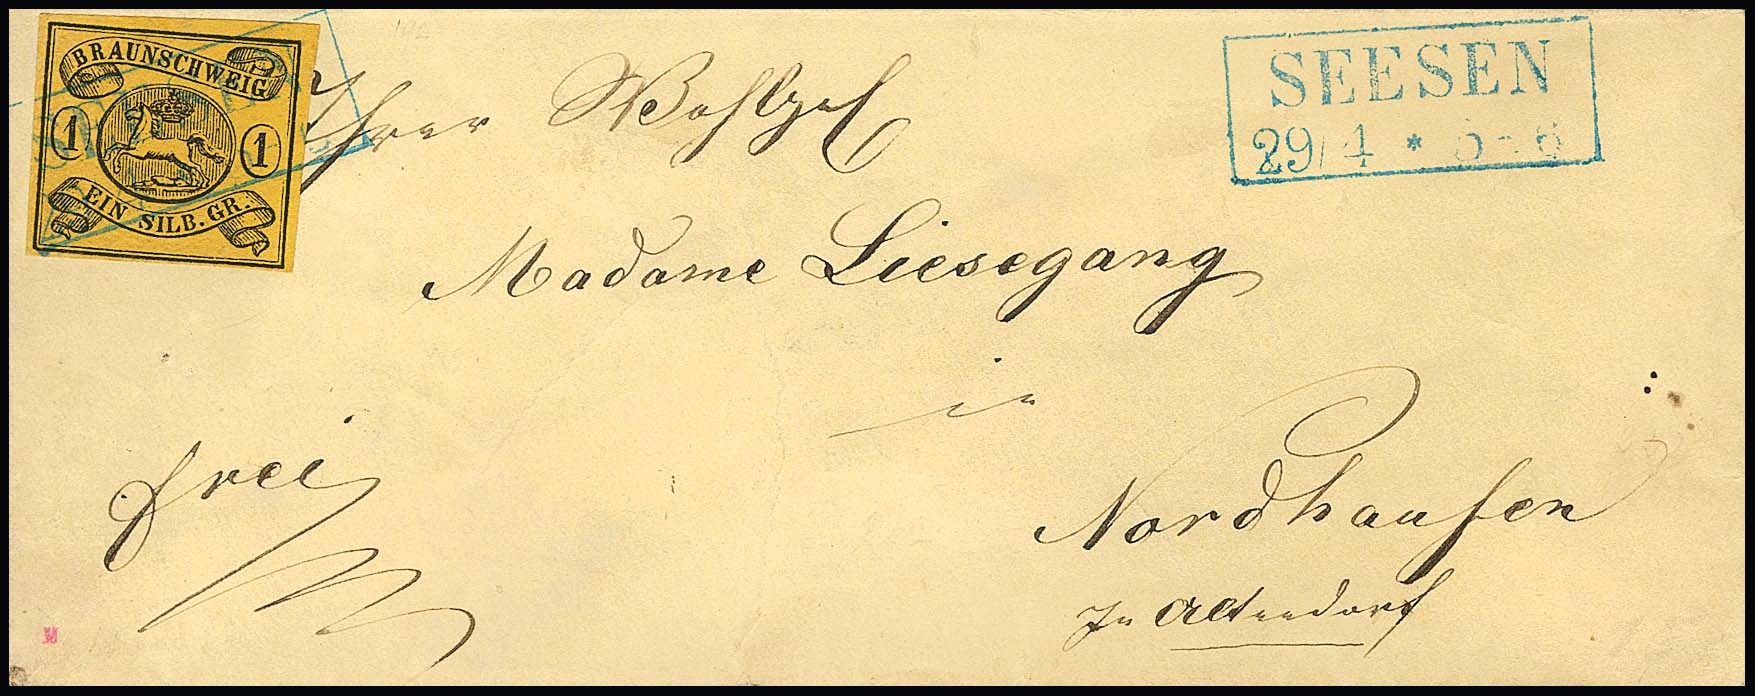 BRAUNSCHWEIG
1 1
EIN SILB. GR.
SEESEN
29/4 * 5-8
Ihrer Wohlgeb
Madame Liesegang
in
frei
Nordhausen
In Altendorf